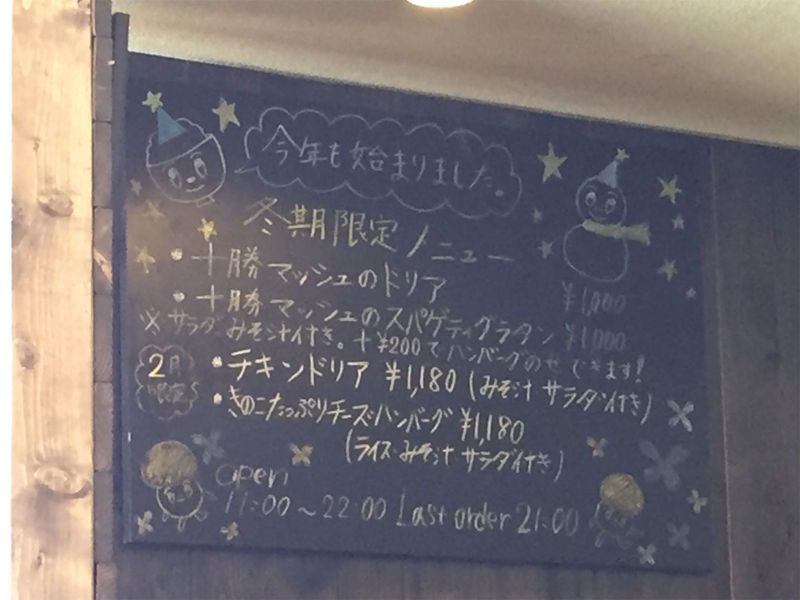 今年も始まりました。
冬期限定メニュー
・十勝マッシュのドリア ¥1,000
・十勝マッシュのスパゲティグラタン ¥1,000
※サラダみそ汁付き。+¥200でハンバーグのせできます!
2月限定
・チキンドリア ¥1,180(みそ汁 サラダ付き)
・きのこたっぷりチーズハンバーグ ¥1,180
(ライス・みそ汁 サラダ付き)
open
11:00~22:00 Last order 21:00